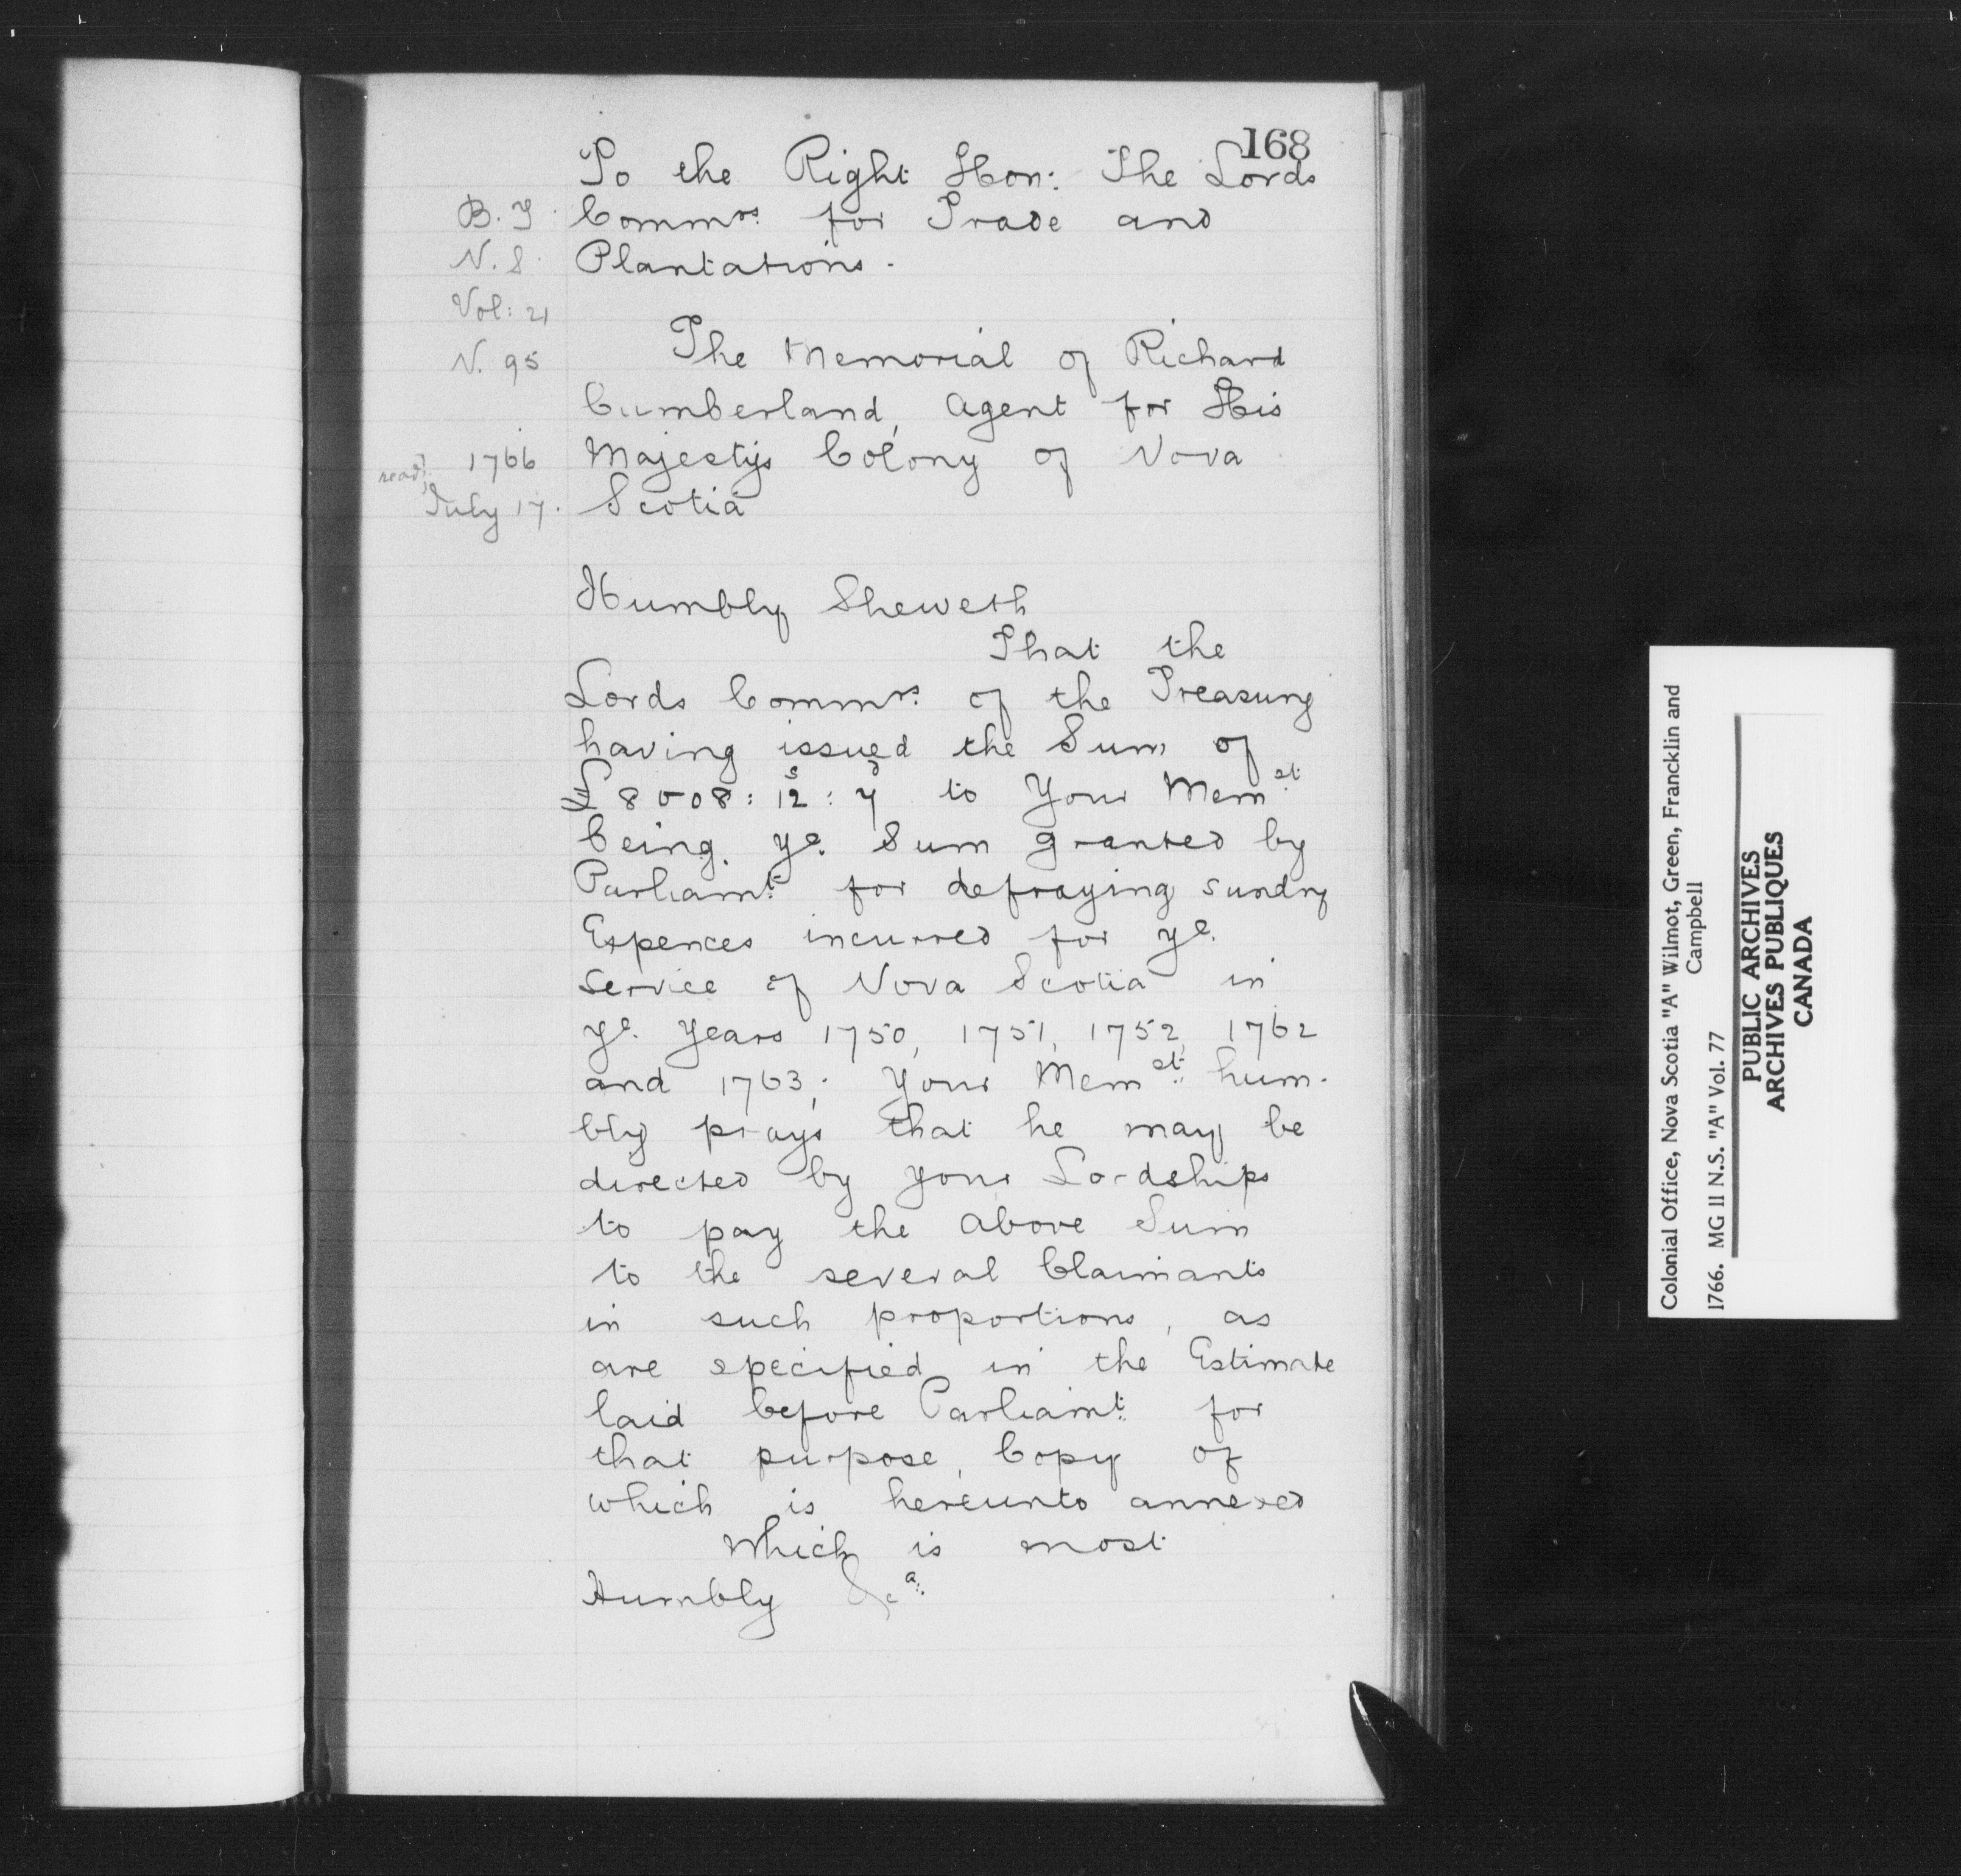 168
To the Right Hon: The Lords
B. T. Comm.rs for Trade and
N. S. Plantations.
Vol: 21
N. 95 The Memorial of Richard
Cumberland, Agent for His
read 1766 Majestys Colony of Nova
July 17. Scotia
Humbly Sheweth
That the
Lords Comm.rs of the Treasury
having issued the Sum of
£8008: 12s: 7d to Your Mem.st
being ye. Sum granted by
Parliamt. for defraying sundry
Expences incurred for ye.
service of Nova Scotia in
ye. Years 1750, 1751, 1752, 1762
and 1763; Your Mem.st hum-
bly prays that he may be
directed by your Lordships
to pay the above Sum
to the several Claimants
in such proportions, as
are specified in the Estimate
laid before Parliamt. for
that purpose, Copy of
which is hereunto annexed
Which is most
Humbly &c.a
Colonial Office, Nova Scotia "A" Wilmot, Green, Francklin and
Campbell
1766. MG II N.S. "A" Vol. 77
PUBLIC ARCHIVES
ARCHIVES PUBLIQUES
CANADA